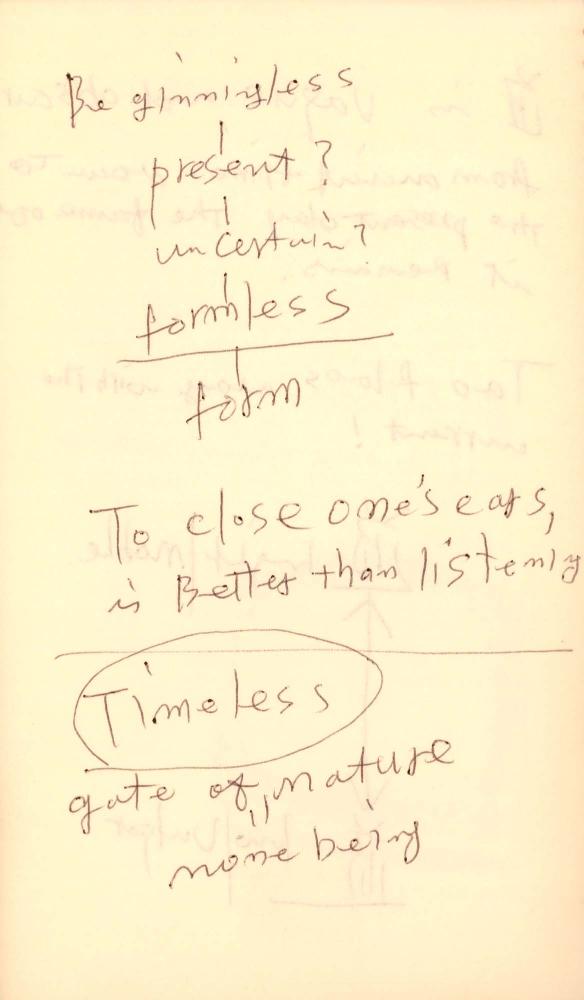 Beginningless
present?
uncertain?
formless
form
To close one's ears,
is Better than listening
Timeless
gate of nature
"
none being